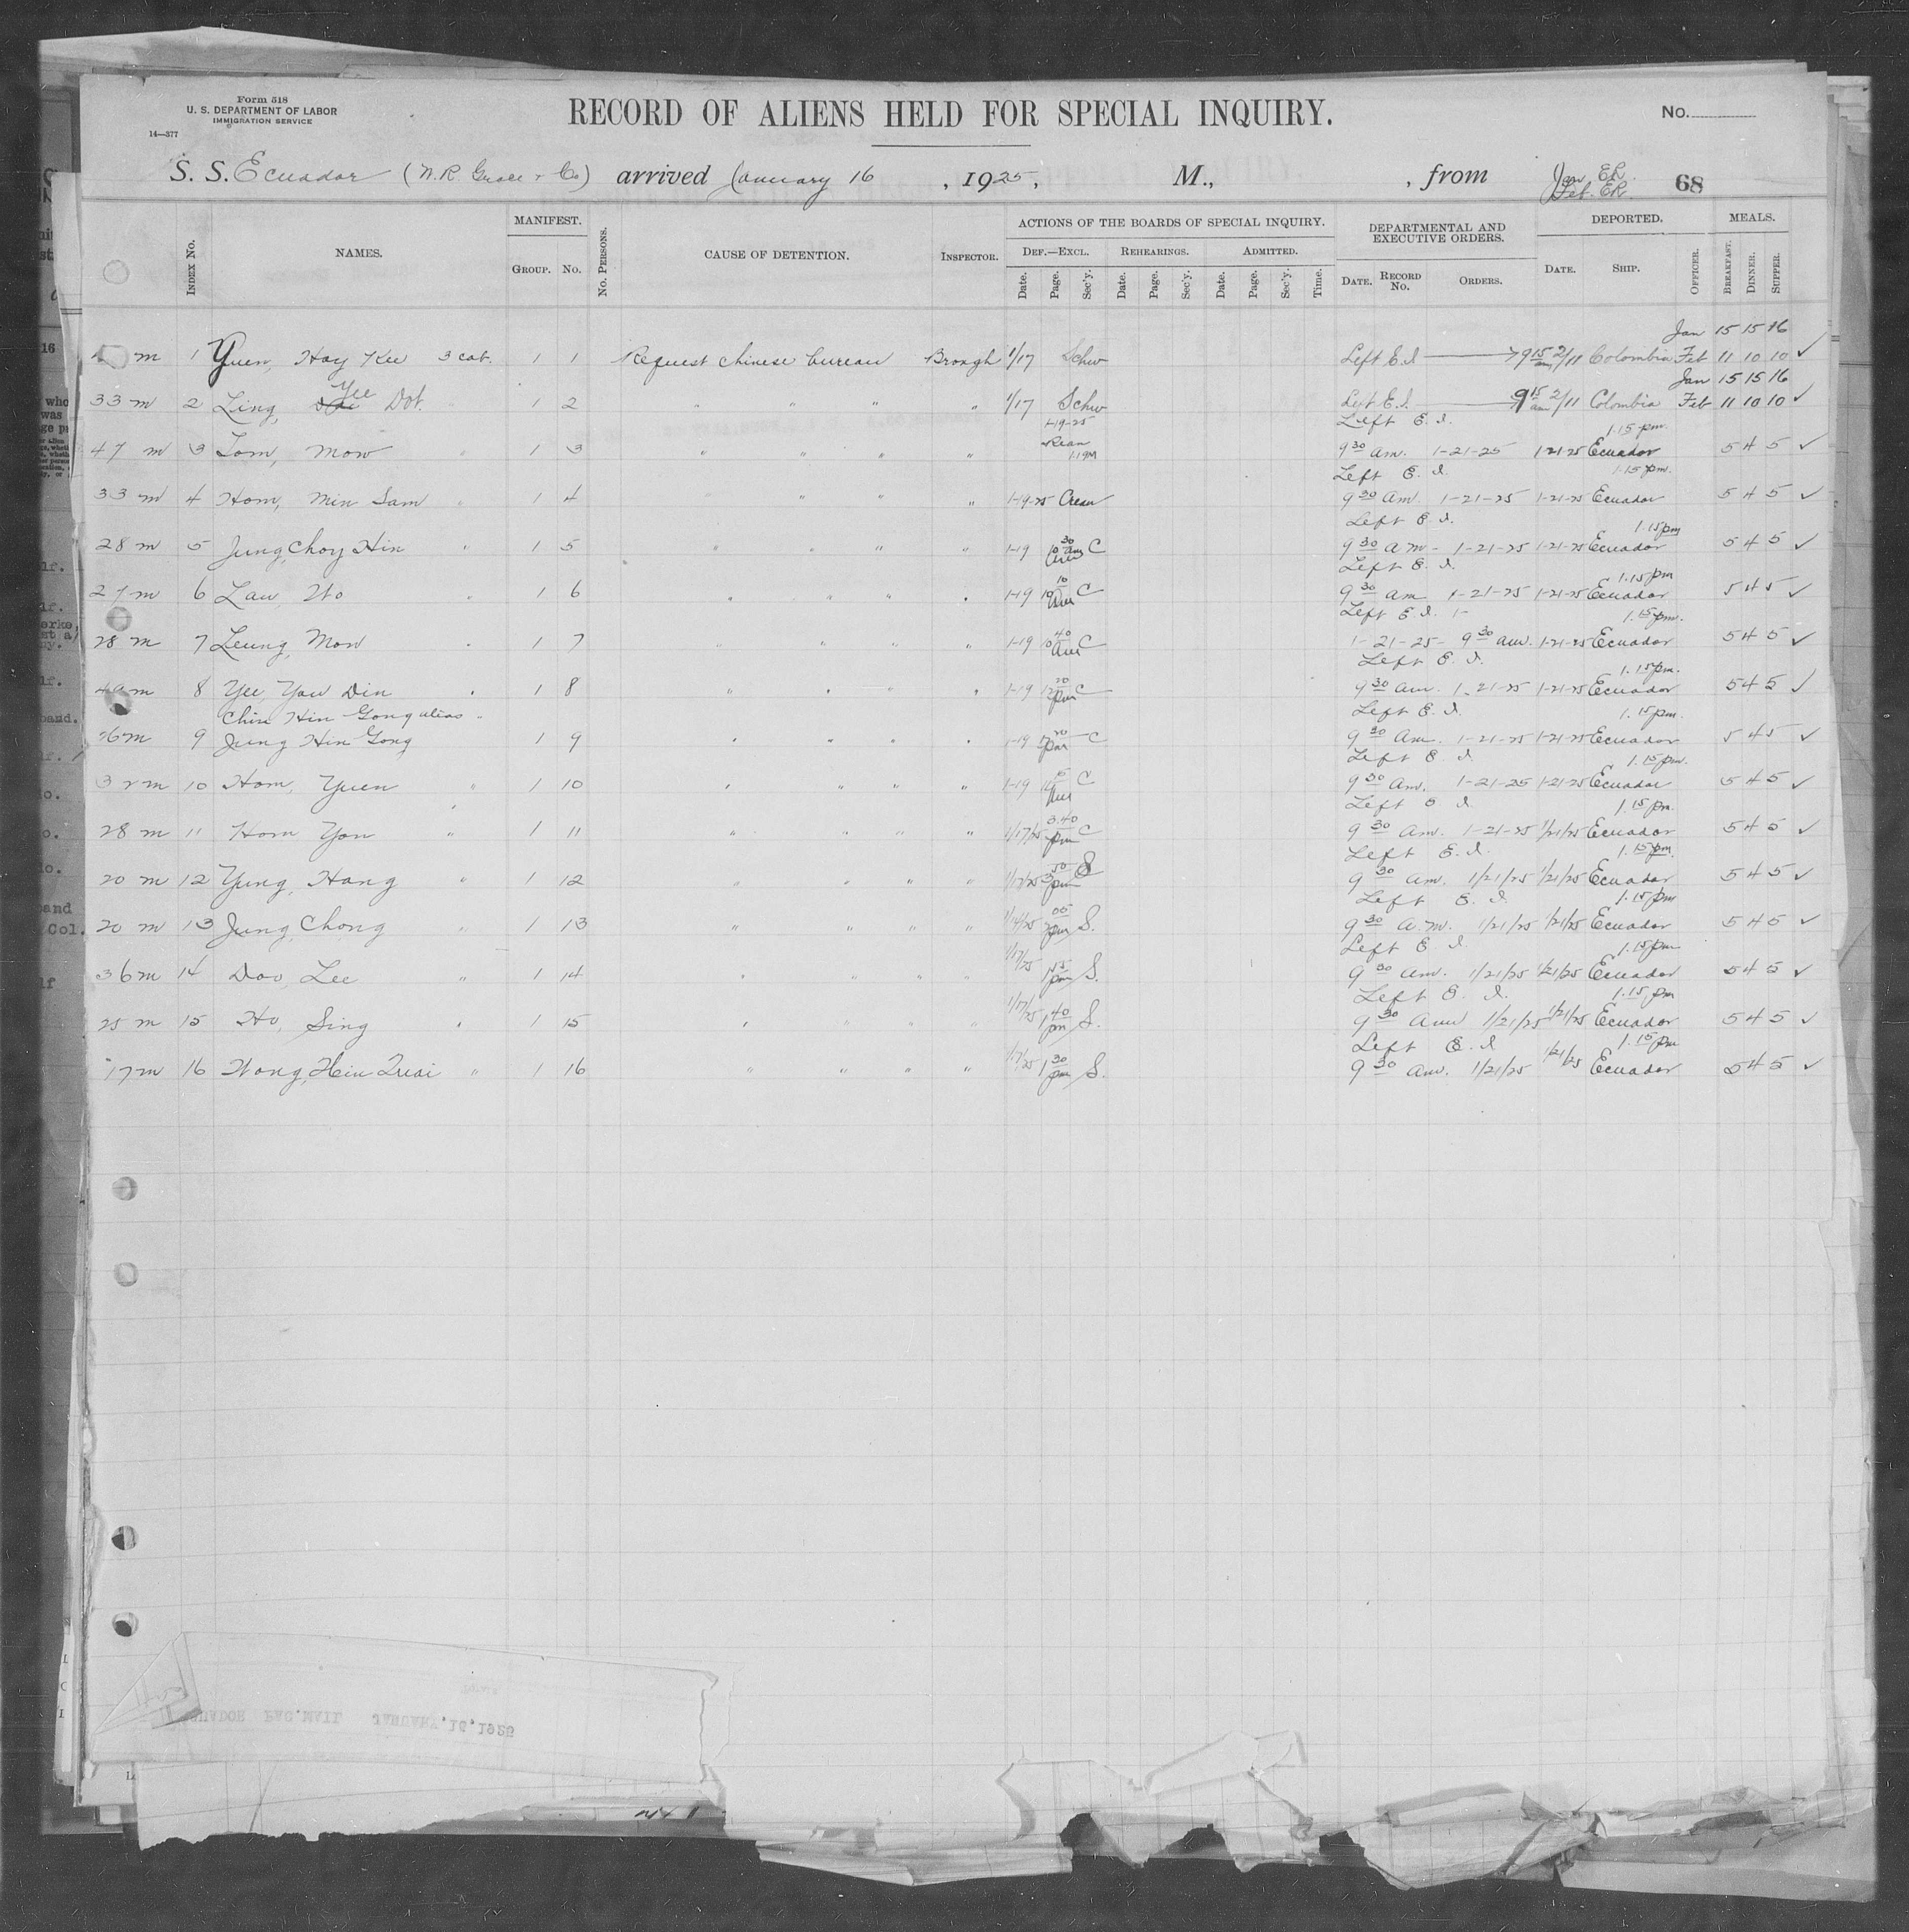 Form 518
U. S. DEPARTMENT OF LABOR
IMMIGRATION SERVICE
14—377
RECORD OF ALIENS HELD FOR SPECIAL INQUIRY.
No.
S. S. Ecuador (W. R. Grace & Co) arrived January 16, 1925, M., , from Jan. ER.
Feb. ER. 68
INDEX No. NAMES. MANIFEST. GROUP. No. No. PERSONS. CAUSE OF DETENTION. INSPECTOR. ACTIONS OF THE BOARDS OF SPECIAL INQUIRY. DEPARTMENTAL AND EXECUTIVE ORDERS. DEPORTED. MEALS.
DEF.—EXCL. REHEARINGS. ADMITTED.
Date. Page. Sec'y. Date. Page. Sec'y. Date. Page. Sec'y. Time. DATE. RECORD No. ORDERS. DATE. SHIP. OFFICER. BREAKFAST. DINNER. SUPPER.
Jan 15 15 16
m 1 Yuen, Hay Kee 3 cab. 1 1 Request Chinese bureau Brough 1/17 Schw Left E.I. 9 15 am 2/11 Colombia Feb 11 10 10 ✓
Yee Jan 15 15 16
33 m 2 Ling, Dot. " 1 2 " " " " 1/17 Schw Left E.I. 9 15 am 2/11 Colombia Feb 11 10 10 ✓
1-19-25 Left E. I. 1.15 pm.
47 m 3 Tom, Mow " 1 3 " " " " 9 30 am. 1-21-25 1-21-25 Ecuador 5 4 5 ✓
Left E. I. 1.15 pm.
33 m 4 Hom, Min Sam " 1 4 " " " " 1-19-25 Crean 9 30 Am. 1-21-25 1-21-25 Ecuador 5 4 5 ✓
Left E. I. 1.15 pm
28 m 5 Jung, Choy Hin " 1 5 " " " " 1-19 10 30 am C 9 30 am - 1-21-25 1-21-25 Ecuador 5 4 5 ✓
Left E. I. 1.15 pm
27 m 6 Lau, Wo " 1 6 " " " " 1-19 10 10 am C 9 30 am 1-21-25 1-21-25 Ecuador 5 4 5 ✓
Left E. I. 1- 1.15 pm.
28 m 7 Leung, Mow " 1 7 " " " " 1-19 10 40 am C 1-21-25- 9 30 am. 1-21-25 Ecuador 5 4 5 ✓
Left E. I. 1.15 pm.
m 8 Yee You Din " 1 8 " " " " 1-19 12 20 pm C 9 30 am. 1-21-25 1-21-25 Ecuador 5 4 5 ✓
Chin Hin Gong alias " Left E. I. 1.15 pm.
26 m 9 Jung Hin Gong 1 9 " " " " 1-19 pm C 9 30 Am. 1-21-25 1-21-25 Ecuador 5 4 5 ✓
Left E. I. 1.15 pm.
32 m 10 Hom, Yuen " 1 10 " " " " 1-19 C 9 30 Am. 1-21-25 1-21-25 Ecuador 5 4 5 ✓
Left E. I. 1.15 pm.
28 m 11 Hom Yon " 1 11 " " " " 1/17/25 3.40 pm C 9 30 am. 1-21-25 1/21/25 Ecuador 5 4 5 ✓
Left E. I. 1.15 pm.
20 m 12 Yung, Hang " 1 12 " " " " 1/17/25 3 50 pm S 9 30 am. 1/21/25 1/21/25 Ecuador 5 4 5 ✓
Left E. I. 1.15 pm
20 m 13 Jung, Chong " 1 13 " " " " 2 05 pm S. 9 30 a.m. 1/21/25 1/21/25 Ecuador 5 4 5 ✓
Left E. I. 1.15 pm
36 m 14 Doo, Lee " 1 14 " " " " 1/17/25 1 55 pm S. 9 30 am. 1/21/25 1/21/25 Ecuador 5 4 5 ✓
Left E. I. 1.15 pm
25 m 15 Ho, Sing " 1 15 " " " " 1/17/25 1 40 pm S. 9 30 Am 1/21/25 1/21/25 Ecuador 5 4 5 ✓
Left E. I. 1.15 pm
17 m 16 Wong, Hein Quai " 1 16 " " " " 1/17/25 1 30 pm S. 9 30 am. 1/21/25 1/21/25 Ecuador 5 4 5 ✓